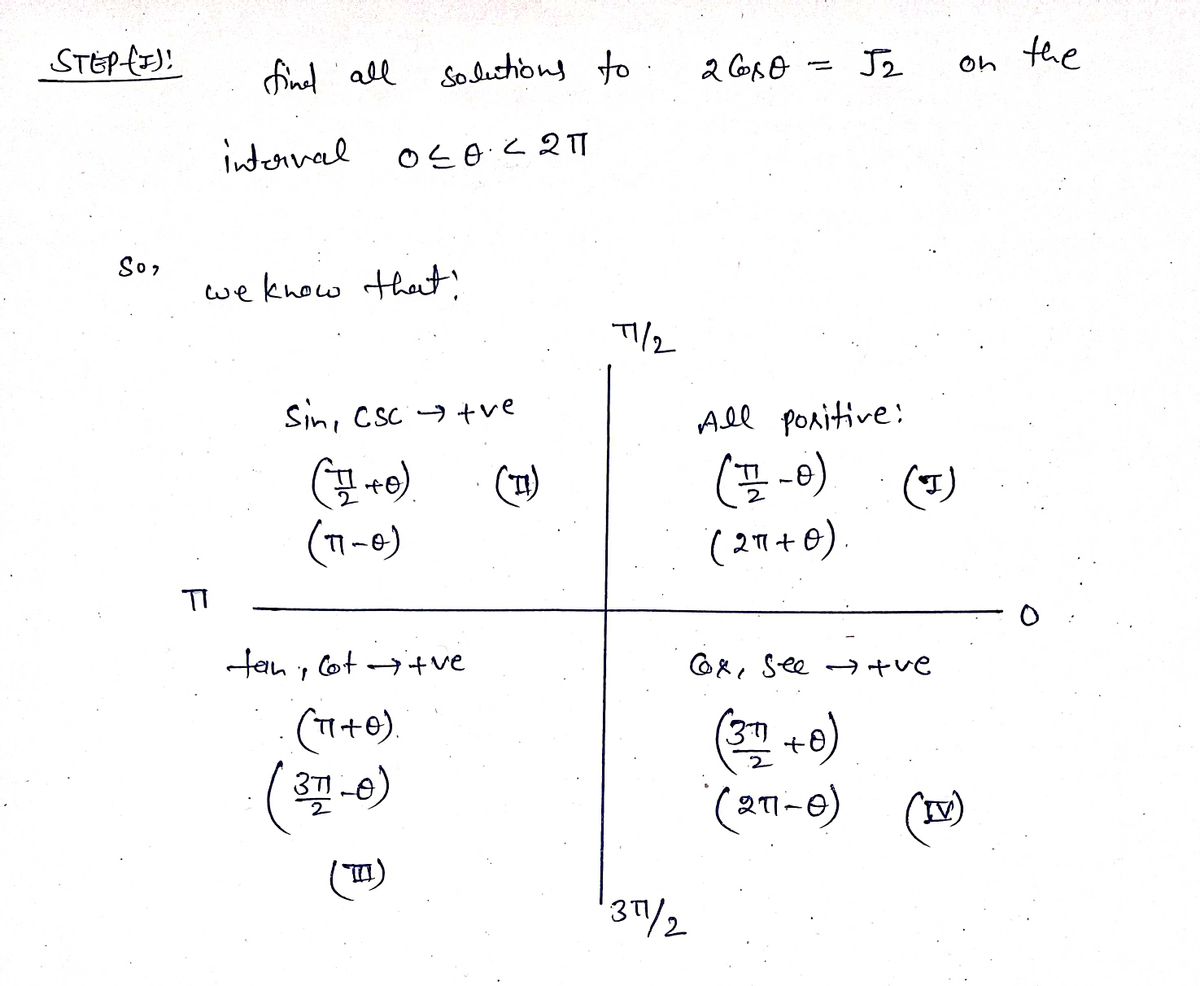 STEP(I):
find all solutions to 2 Cos θ = √2 on the
interval 0 ≤ θ < 2π
So,
we know that:
π/2
Sin, CSC → +ve
(π/2 + θ) (II)
(π - θ)
All positive:
(π/2 - θ) (I)
(2π + θ).
π
0
tan, Cot → +ve
(π + θ).
(3π/2 - θ)
(III)
Cos, Sec → +ve
(3π/2 + θ)
(2π - θ) (IV)
3π/2